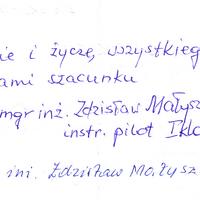 ie i życzę, wszystkieg
ami szacunku
mgr inż. Zdzisław Małysz
instr. pilot I kl
inż. Zdzisław Małysz